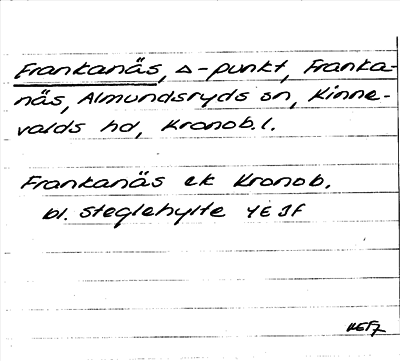 Frankanäs, △-punkt, Franka-
näs, Almundsryds sn, Kinne-
valds hd, Kronob.l.
Frankanäs ek Kronob.
bl. Steglehylte 4E 3f